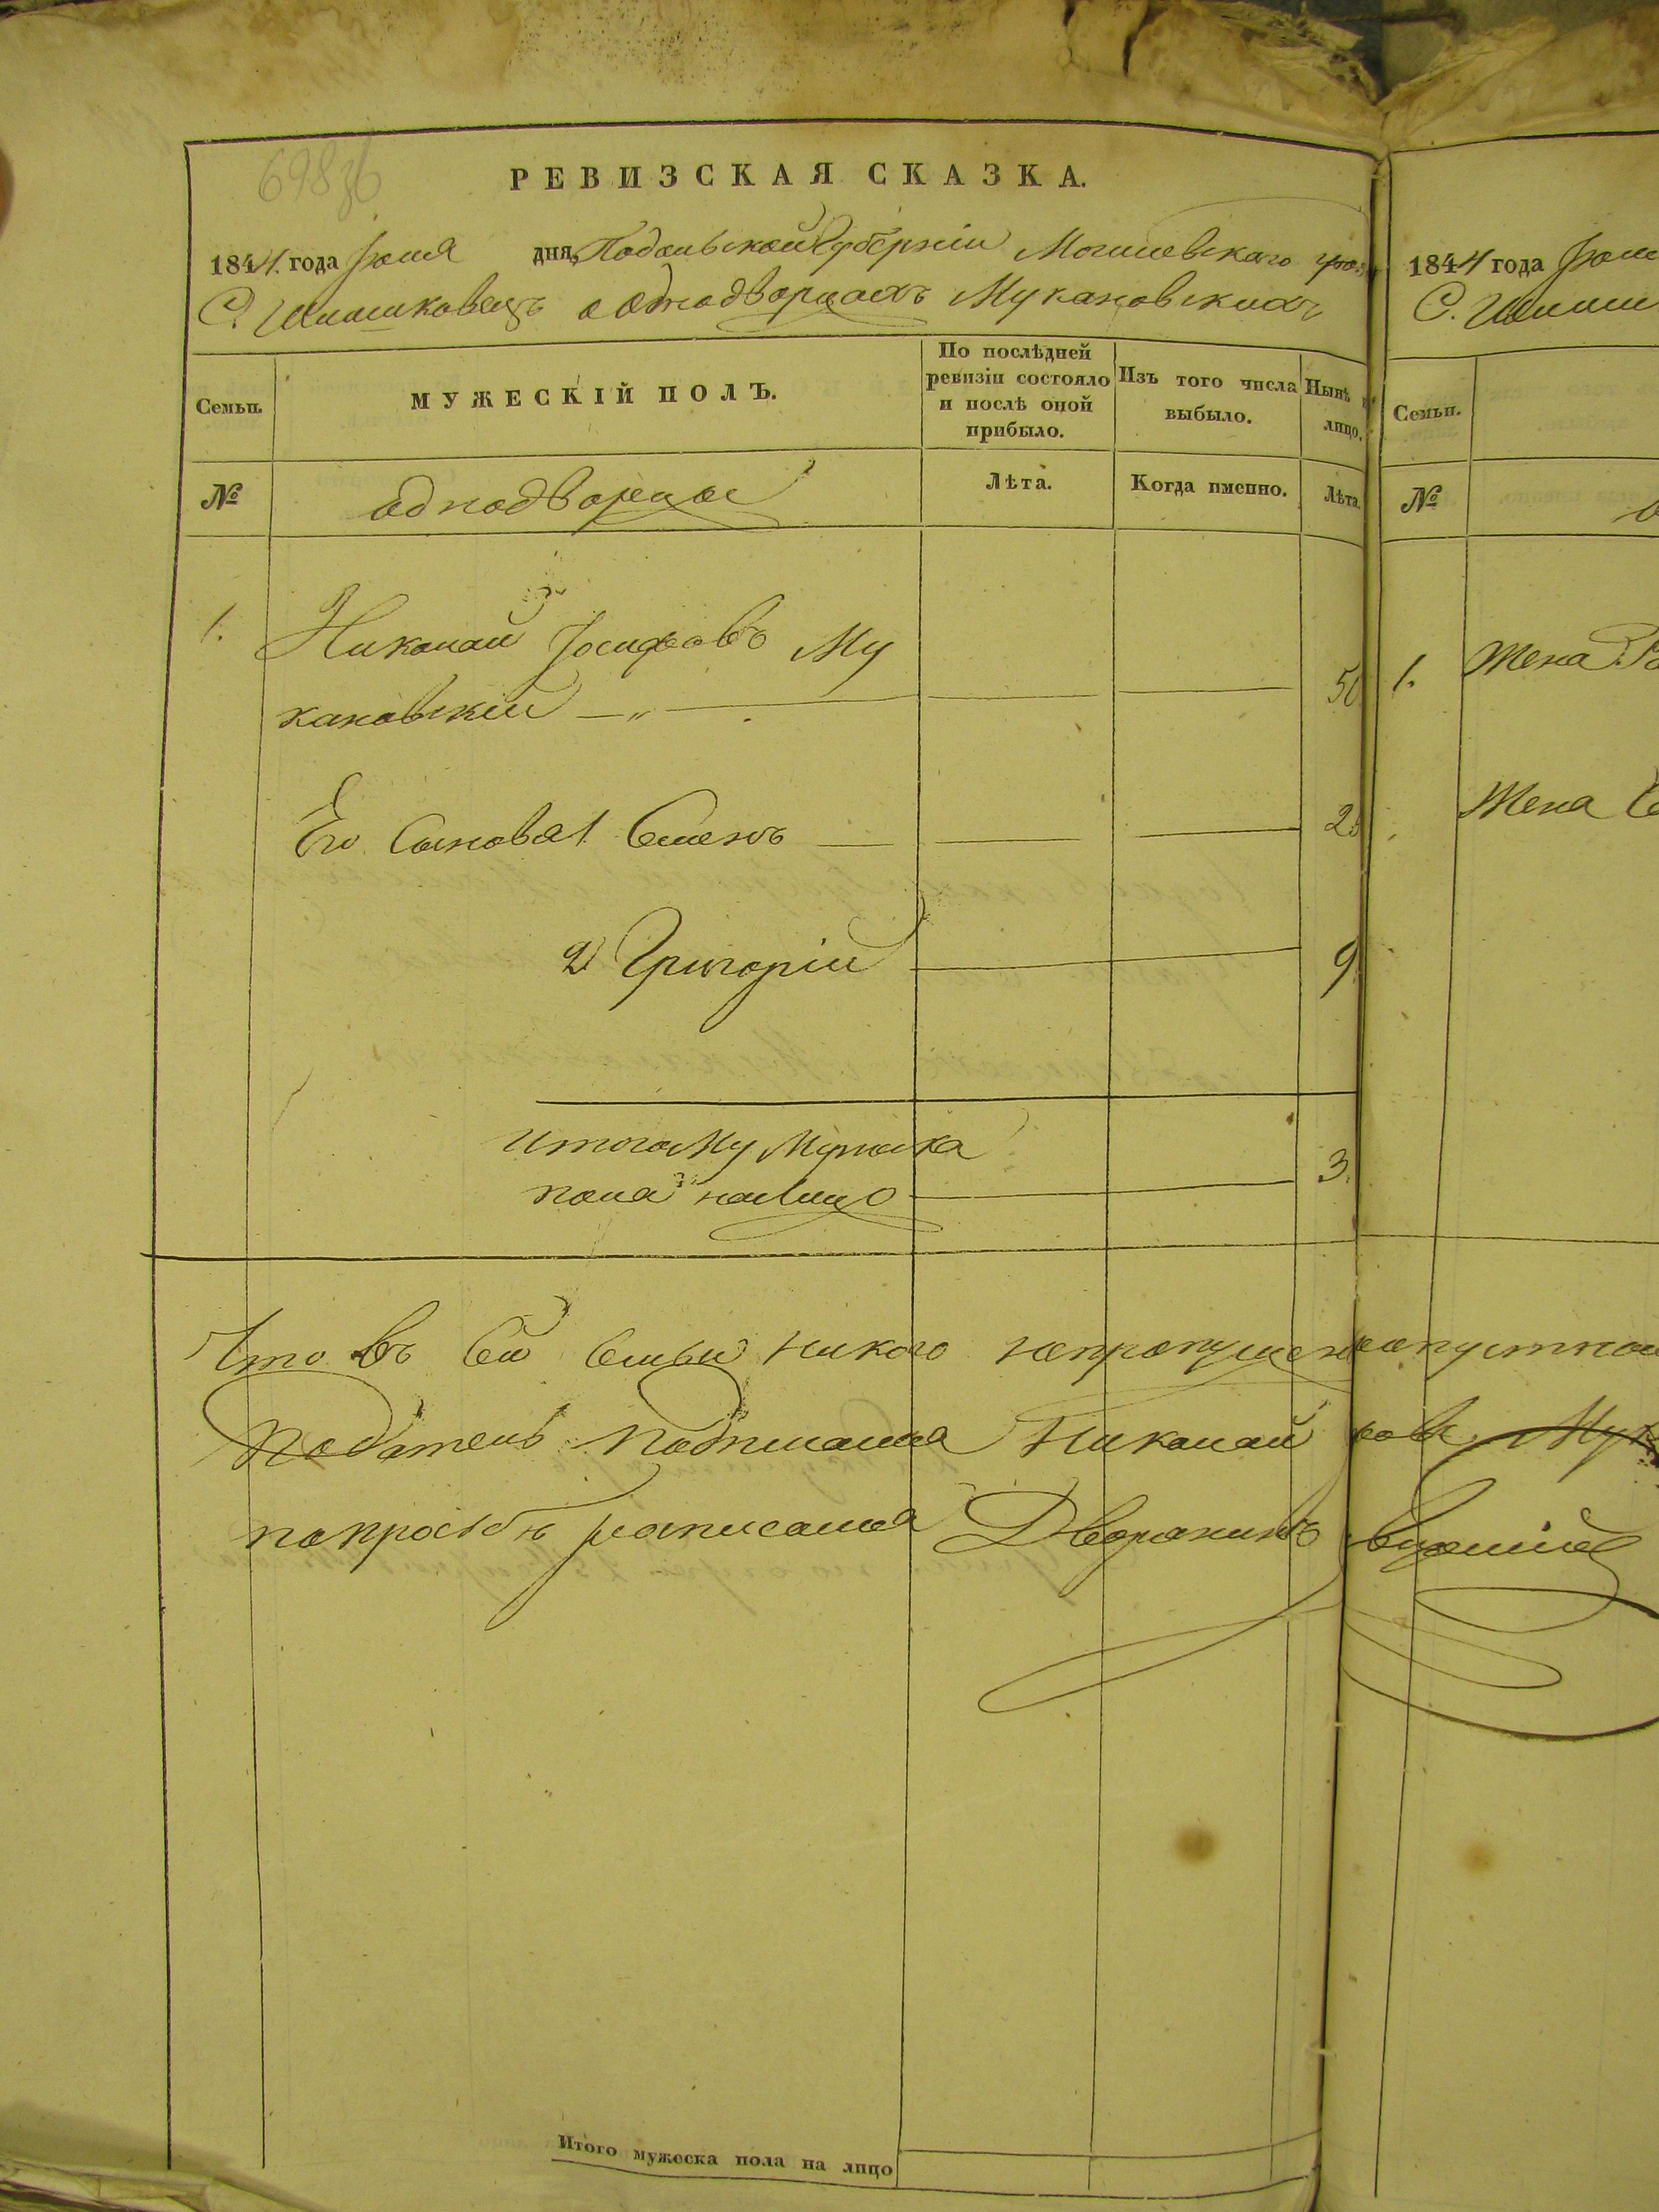 РЕВИЗСКАЯ СКАЗКА.
1844. года Іюля дня, Подольской Губерніи Могилевскаго
С. Шишковецъ о однодворцахъ Мукановскихъ
Семьи.
МУЖЕСКІЙ ПОЛЪ.
По послѣдней ревизіи состояло и послѣ оной прибыло.
Изъ того числа выбыло.
Нынѣ
лицо.
№
однодворцы
Лѣта.
Когда именно.
Лѣта
1.
Николай Іосифовъ Му
кановскій — „ —
50
Его Сыновья 1. Семенъ
2
2) Григорій
9
Итого Му Мужеска
пола налицо
3.
Что въ сей семьи никого
Податель подписался Николай
попросьбѣ росписался Дворянинъ
Итого мужеска пола на лицо
1844 года
С.
Семьи.
№
1.
Жена
Жена